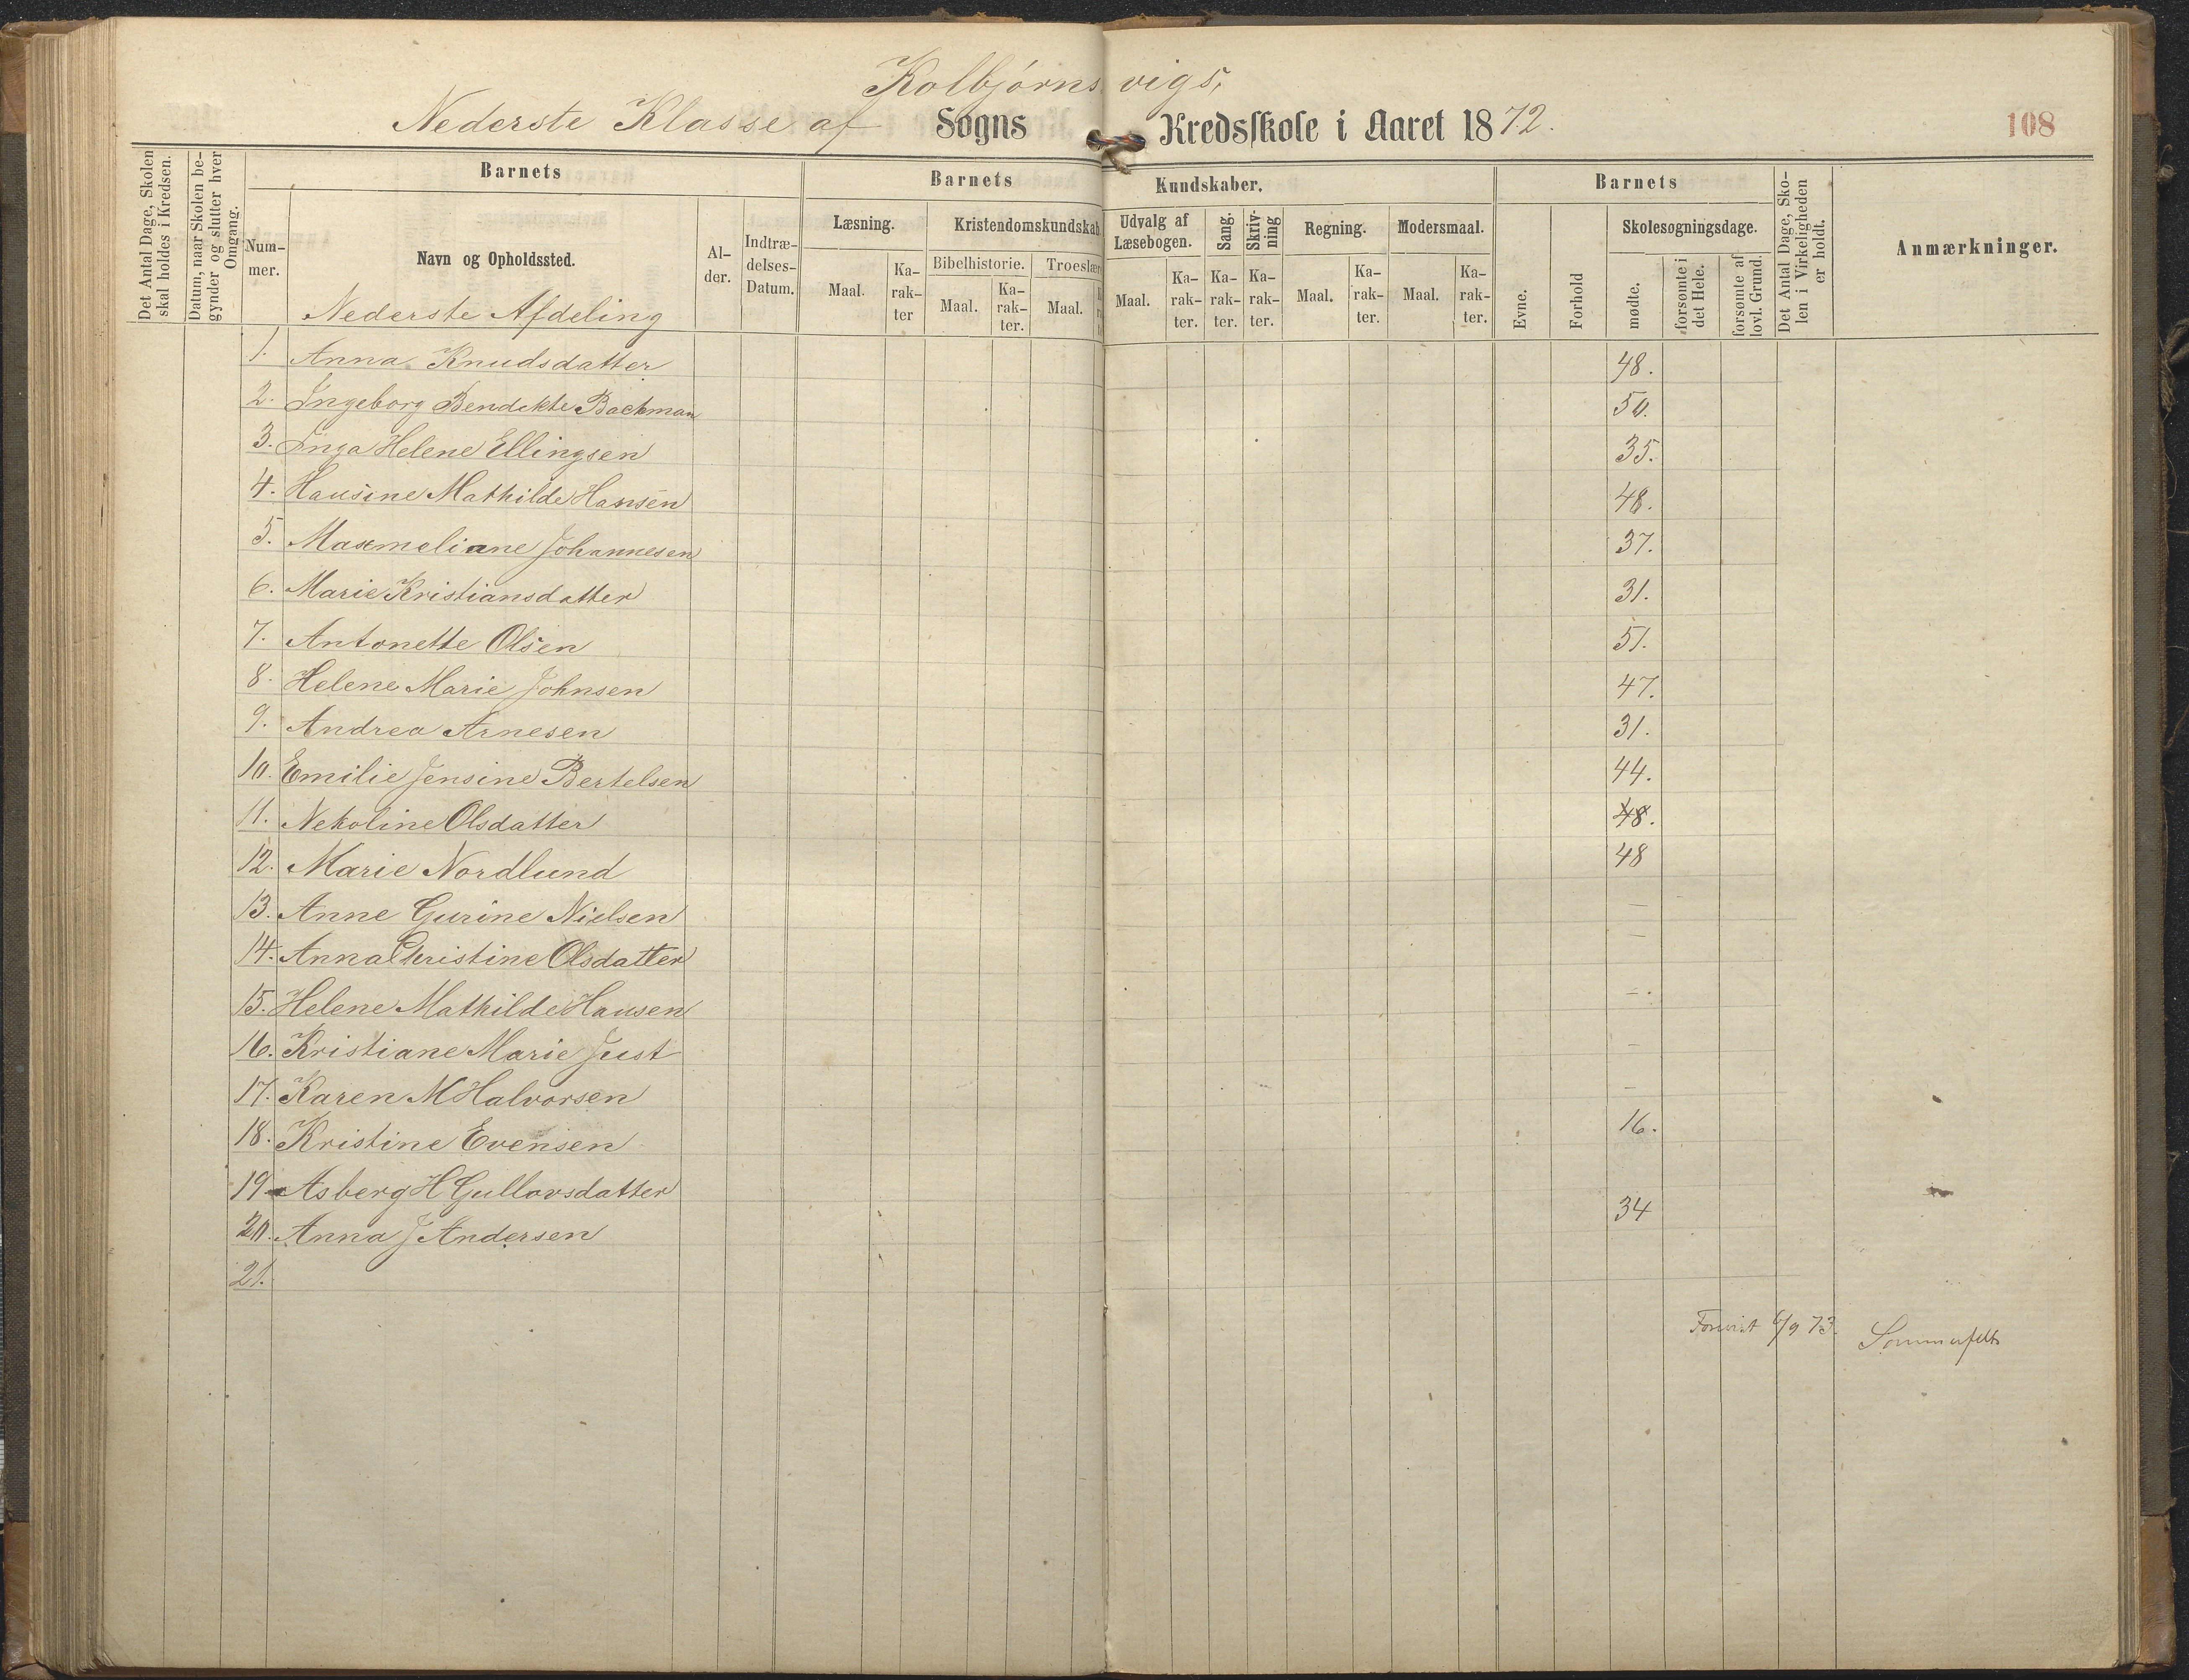 Kolbjørnsvigs,
Nederste Klasse af Sogns Kredsskole i Aaret 1872.
108
Det Antal Dage, Skolen skal holdes i Kredsen.
Datum, naar Skolen begynder og slutter hver Omgang.
Barnets
Nummer.
Navn og Opholdssted.
Alder.
Indtrædelses-Datum.
Barnets Kundskaber.
Læsning.
Maal.
Karakter
Kristendomskundskab.
Bibelhistorie.
Maal.
Karakter.
Troeslær
Maal.
Udvalg af Læsebogen.
Maal.
Karakter.
Sang.
Karakter.
Skrivning
Karakter.
Regning.
Maal.
Karakter.
Modersmaal.
Maal.
Karakter.
Barnets
Evne.
Forhold
Skolesøgningsdage.
mødte.
forsømte i det Hele.
forsømte af lovl. Grund.
Det Antal Dage, Skolen i Virkeligheden er holdt.
Anmærkninger.
Nederste Afdeling
1. Anna Knudsdatter 48.
2. Ingeborg Bendikte Bachman 50.
3. Inga Helene Ellingsen 35.
4. Hansine Mathilde Hansen 48.
5. Maxmeliane Johannesen 37.
6. Marie Kristiansdatter 31.
7. Antonette Olsen 51.
8. Helene Marie Johnsen 47.
9. Andrea Arnesen 31.
10. Emilie Jensine Bertelsen 44.
11. Nekoline Olsdatter 48.
12. Marie Nordlund 48
13. Anne Gurine Nielsen —
14. Anna Christine Olsdatter —
15. Helene Mathilde Hansen —.
16. Kristiane Marie Just —
17. Karen M Halvorsen —
18. Kristine Evensen 16.
19 Asberg H Gullovsdatter
20. Anna J Andersen 34
21.
Forevist 6/9 73. Sommerfelt